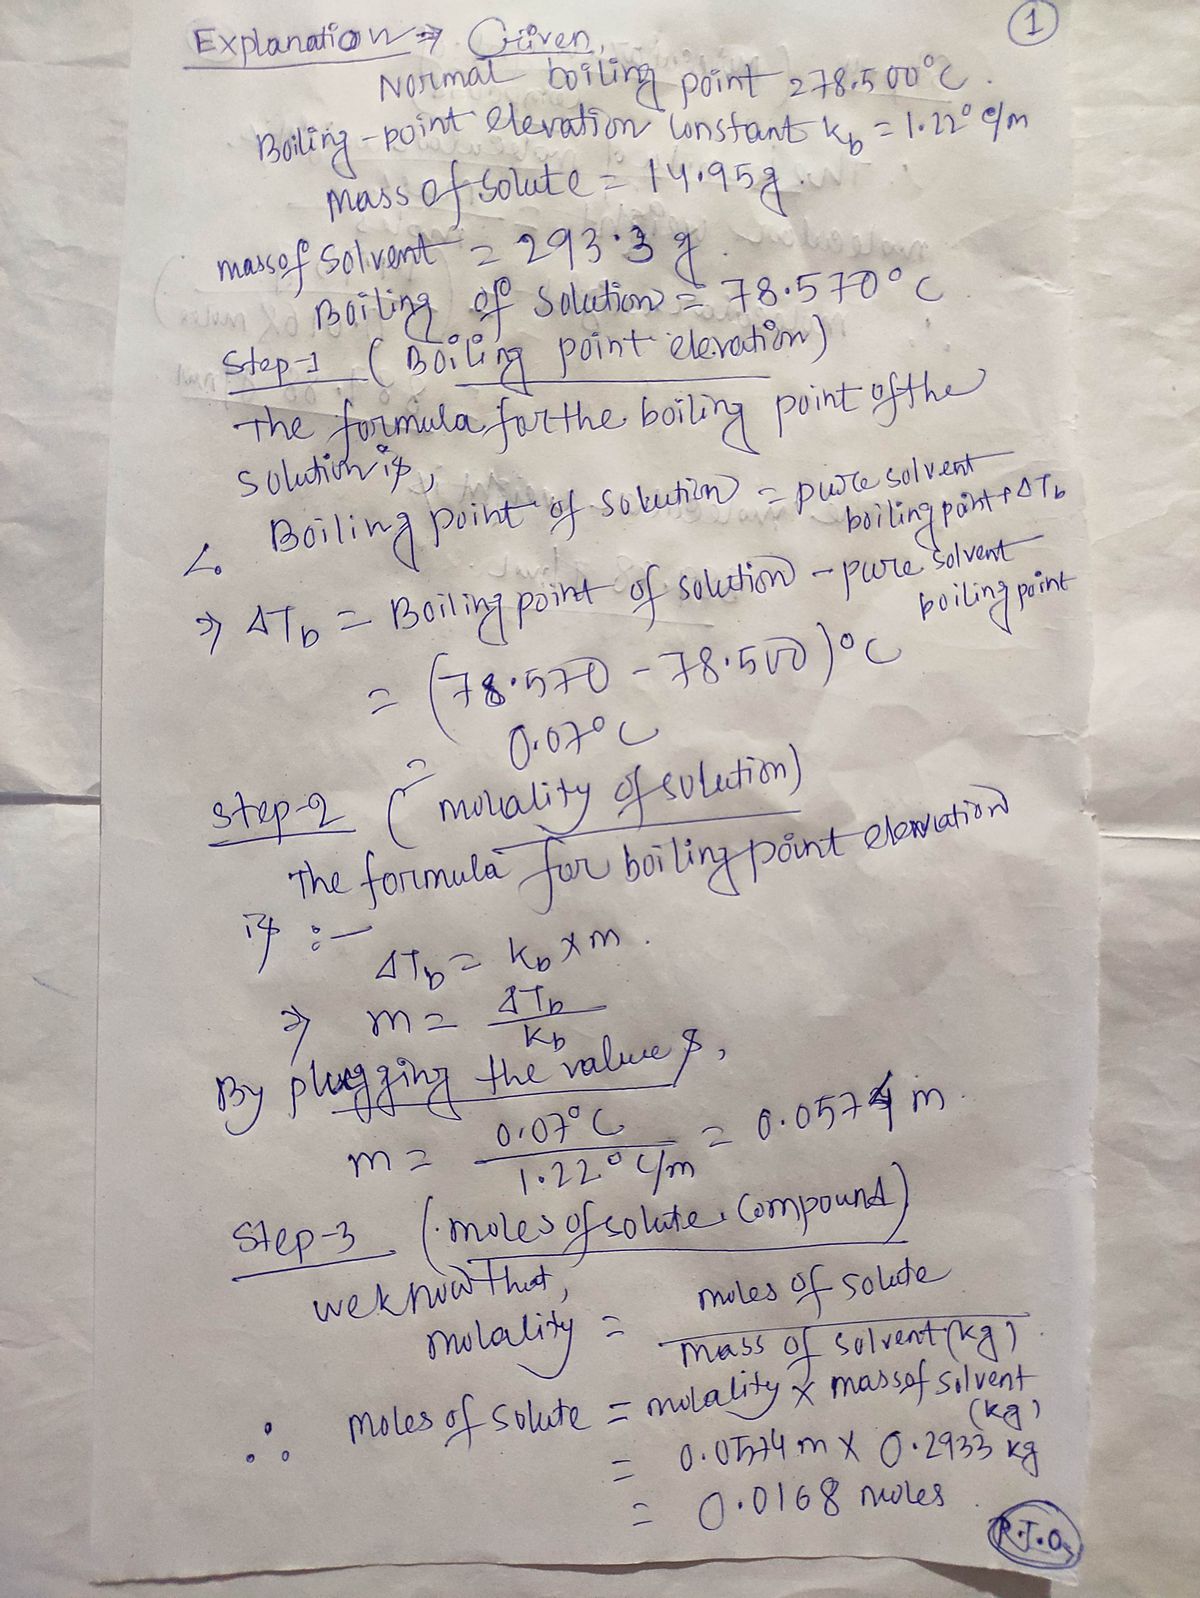 Explanation → Given,
①
Normal boiling point 278.500°C.
Boiling-point elevation constant Kb = 1.22° c/m
Mass of solute = 14.95g.
mass of solvent = 293.3 g.
Boiling of solution = 78.570°C
Step-1 (Boiling point elevation)
The formula for the boiling point of the
solution is,
Boiling point of solution = pure solvent
boiling point + ΔTb
⇒ ΔTb = Boiling point of solution - pure solvent
boiling point
= (78.570 - 78.500)°C
= 0.07°C
Step-2 (molality of solution)
The formula for boiling point elevation
is :-
ΔTb = Kb × m.
⇒ m = ΔTb / Kb
By plugging the values,
m = 0.07°C / 1.22°C/m = 0.0574 m.
Step-3 (moles of solute compound)
we know that,
molality = moles of solute / mass of solvent (kg)
∴ moles of solute = molality × mass of solvent
(kg)
= 0.0574 m × 0.2933 kg
= 0.0168 moles.
P.T.O,